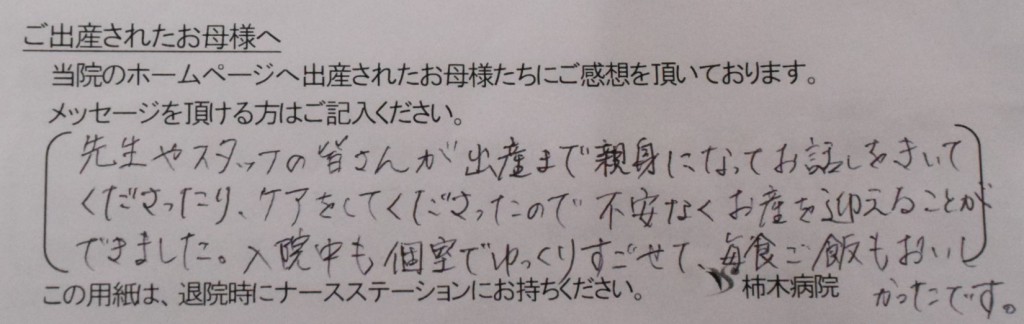 ご出産されたお母様へ
当院のホームページへ出産されたお母様たちにご感想を頂いております。
メッセージを頂ける方はご記入ください。
先生やスタッフの皆さんが出産まで親身になってお話しをきいて
くださったり、ケアをしてくださったので不安なくお産を迎えることが
できました。入院中も個室でゆっくりすごせて、毎食ご飯もおいし
かったです。
この用紙は、退院時にナースステーションにお持ちください。
柿木病院